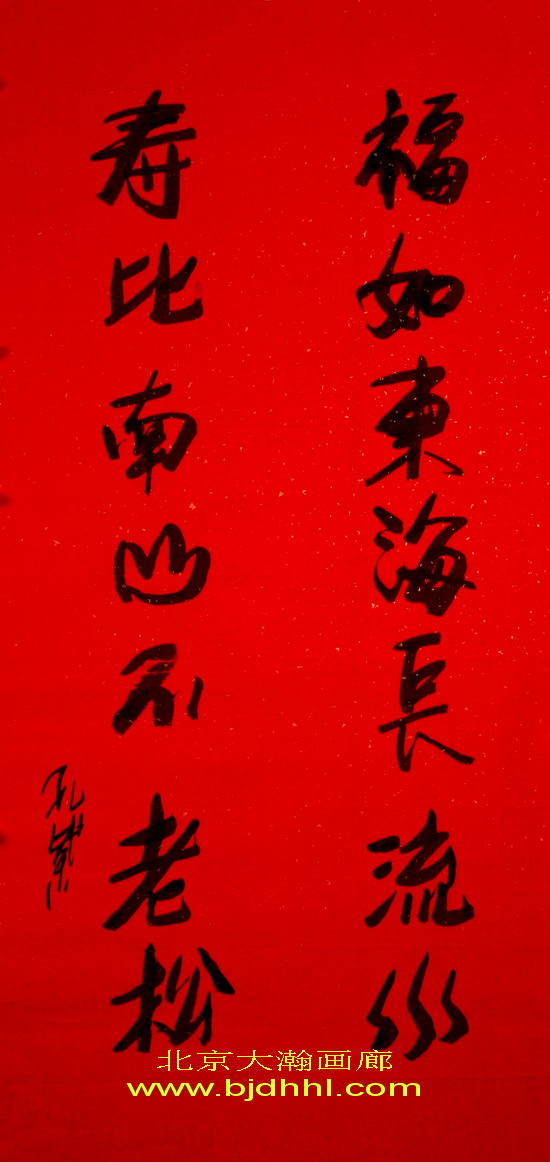 福如東海長流水
寿比南山不老松
北京大瀚画廊
www.bjdhhl.com